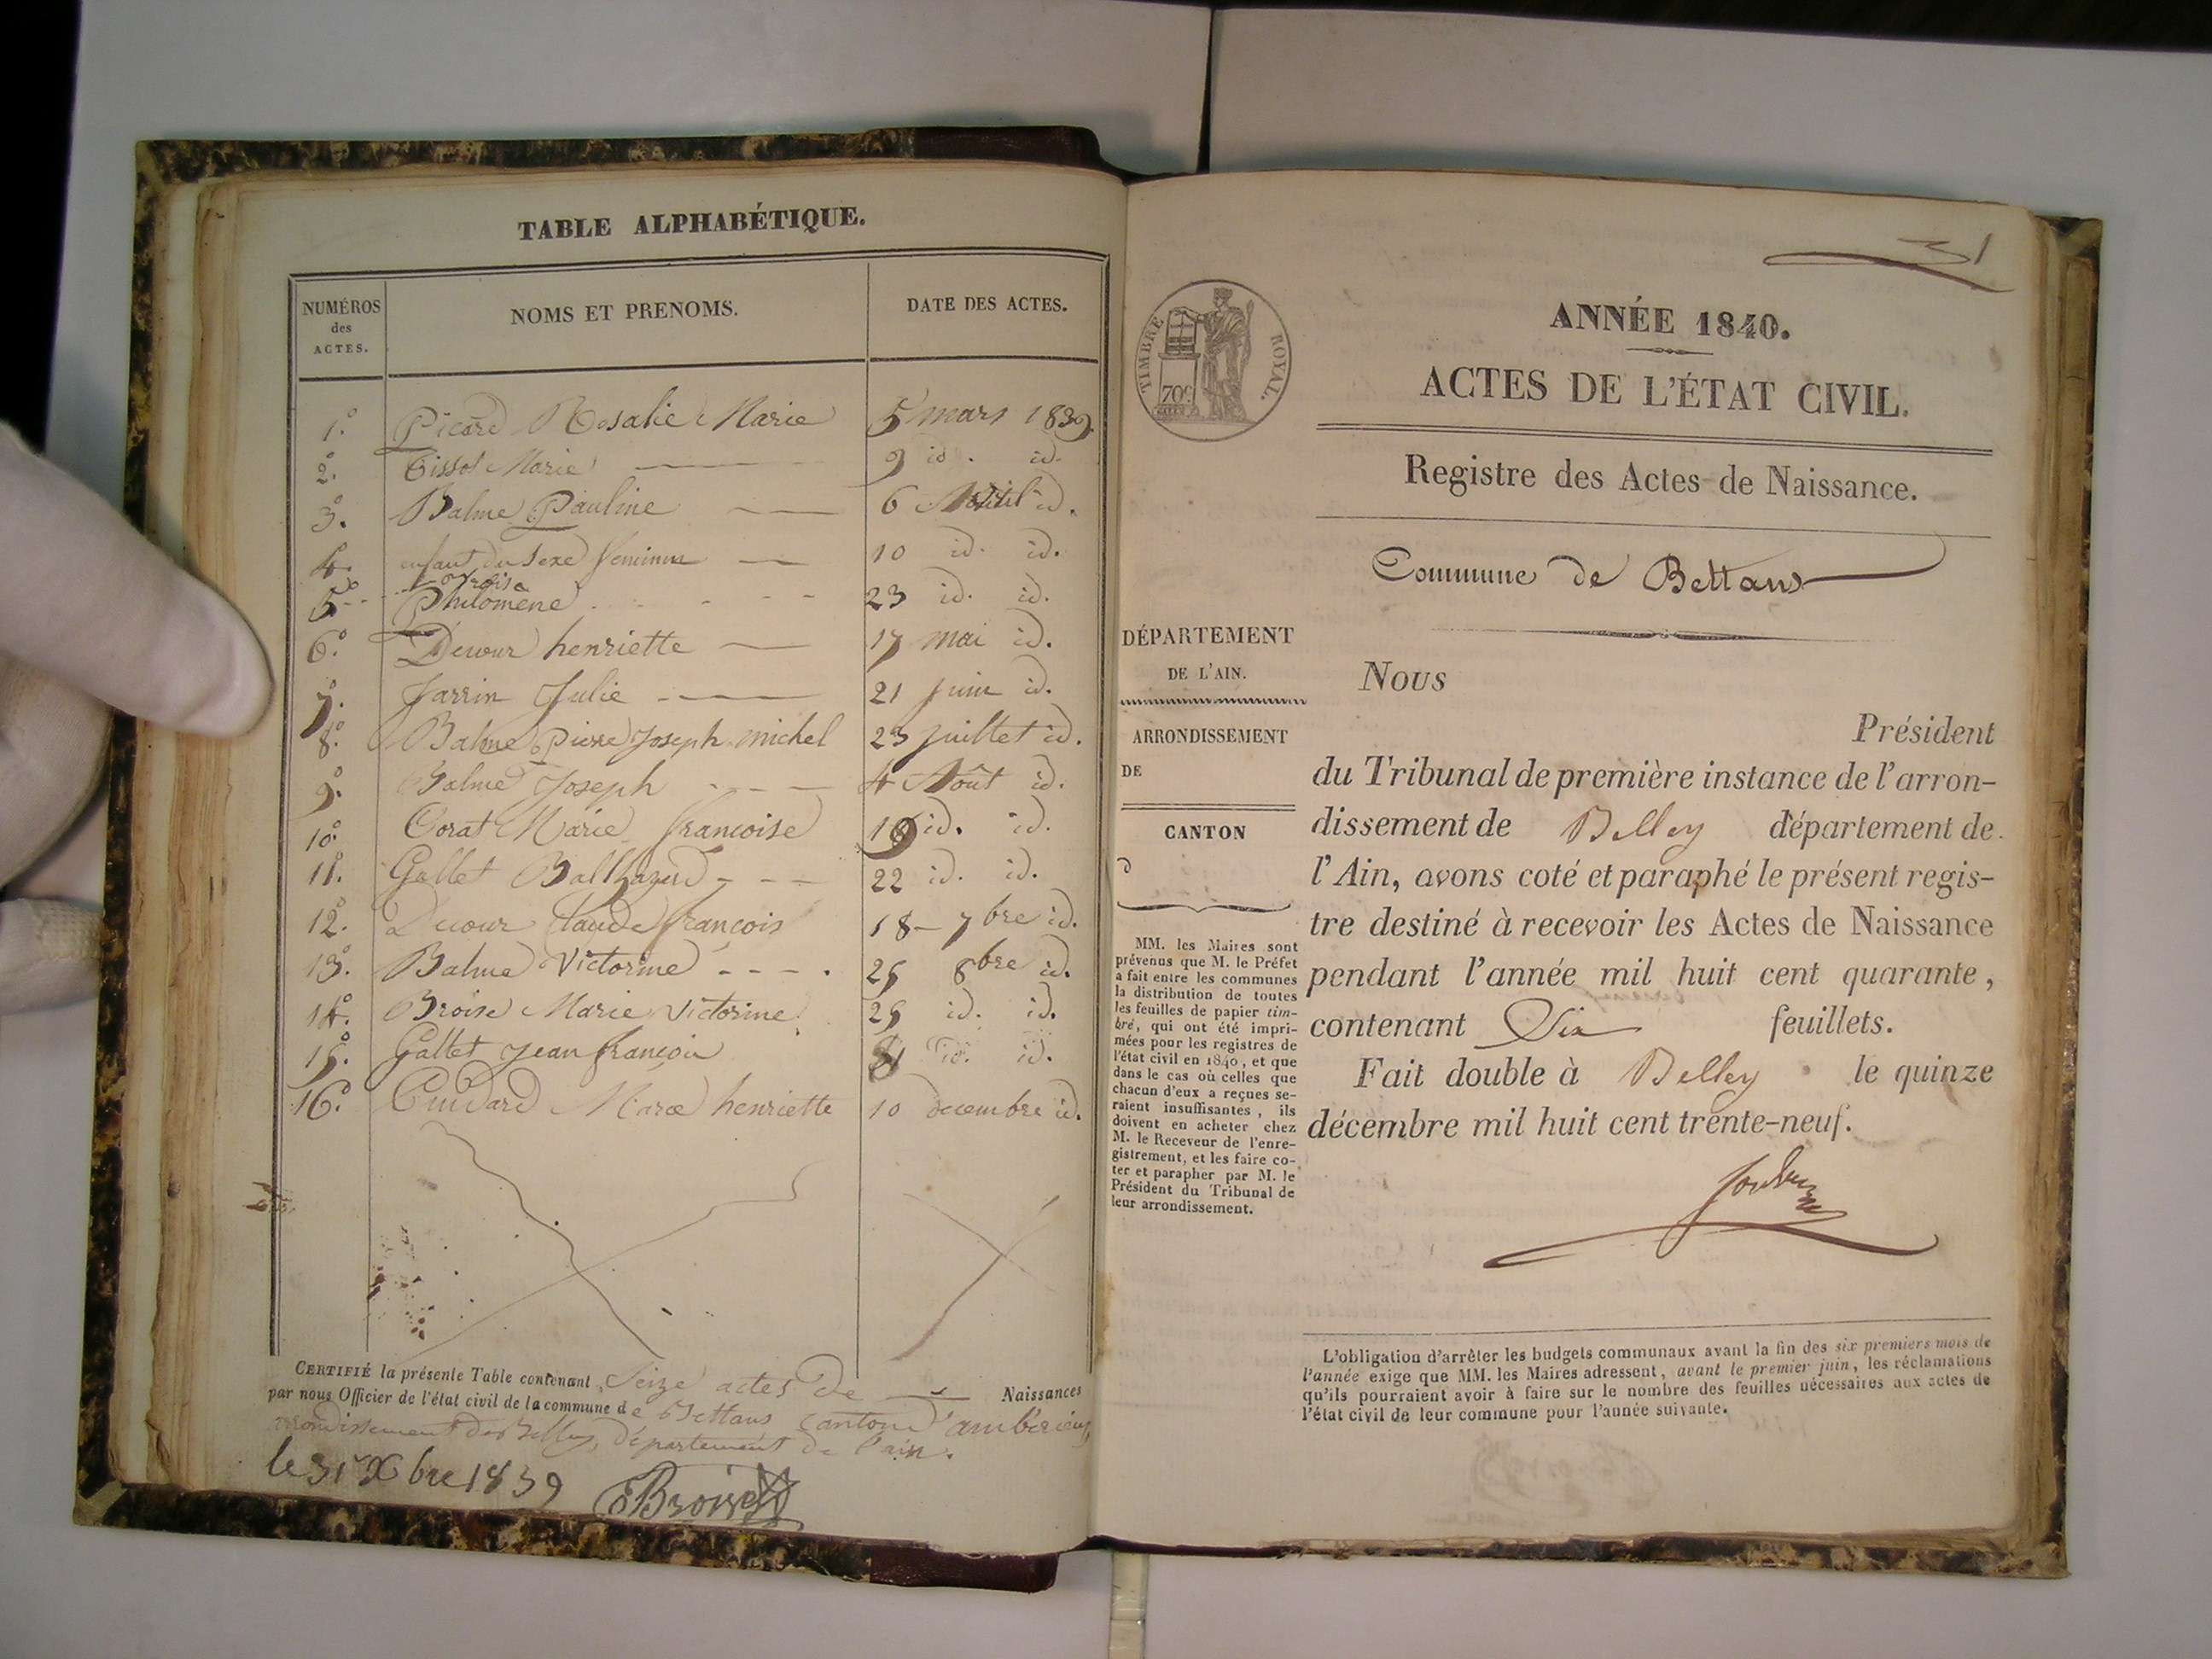 TABLE ALPHABÉTIQUE.
NUMÉROS
des
ACTES.
NOMS ET PRENOMS.
DATE DES ACTES.
1.° Picard Rosalie Marie 5 mars 1839.
2.° Tissot Marie 9 id. id.
3.° Balme Pauline 6 id.
4.° enfant du Sexe feminin 10 id. id.
5.° Philomene 23 id. id.
6.° Decour henriette 17 mai id.
7.° Jarrin Julie 21 juin id.
8.° Balme Pierre Joseph michel 23 juillet id.
9.° Balme Joseph 4 Août id.
10.° Corat Marie francoise id. id.
11.° Gallet Balthazard 22 id. id.
12.° Decour Claude francois 18 - 7bre id.
13.° Balme Victorine 25 8bre id.
14.° Broise Marie Victorine 25 id. id.
15.° Gallet Jean francois 31 id. id.
16.° Cuidard Marie henriette 10 decembre id.
CERTIFIÉ la présente Table contenant Seize actes de Naissances
par nous Officier de l'état civil de la commune de Bettans canton d'ambérieux,
arrondissement de Belley, département de l'ain.
le 31 Xbre 1839 Broise
31
TIMBRE ROYAL.
70c
ANNÉE 1840.
ACTES DE L'ÉTAT CIVIL.
Registre des Actes de Naissance.
Commune de Bettans
DÉPARTEMENT
DE L'AIN.
ARRONDISSEMENT
DE
CANTON
MM. les Maires sont
prévenus que M. le Préfet
a fait entre les communes
la distribution de toutes
les feuilles de papier tim-
bré, qui ont été impri-
mées pour les registres de
l'état civil en 1840, et que
dans le cas où celles que
chacun d'eux a reçues se-
raient insuffisantes, ils
doivent en acheter chez
M. le Receveur de l'enre-
gistrement, et les faire co-
ter et parapher par M. le
Président du Tribunal de
leur arrondissement.
Nous
Président
du Tribunal de première instance de l'arron-
dissement de Belley département de
l'Ain, avons coté et paraphé le présent regis-
tre destiné à recevoir les Actes de Naissance
pendant l'année mil huit cent quarante,
contenant Six feuillets.
Fait double à Belley le quinze
décembre mil huit cent trente-neuf.
L'obligation d'arrêter les budgets communaux avant la fin des six premiers mois de
l'année exige que MM. les Maires adressent, avant le premier juin, les réclamations
qu'ils pourraient avoir à faire sur le nombre des feuilles nécessaires aux actes de
l'état civil de leur commune pour l'année suivante.